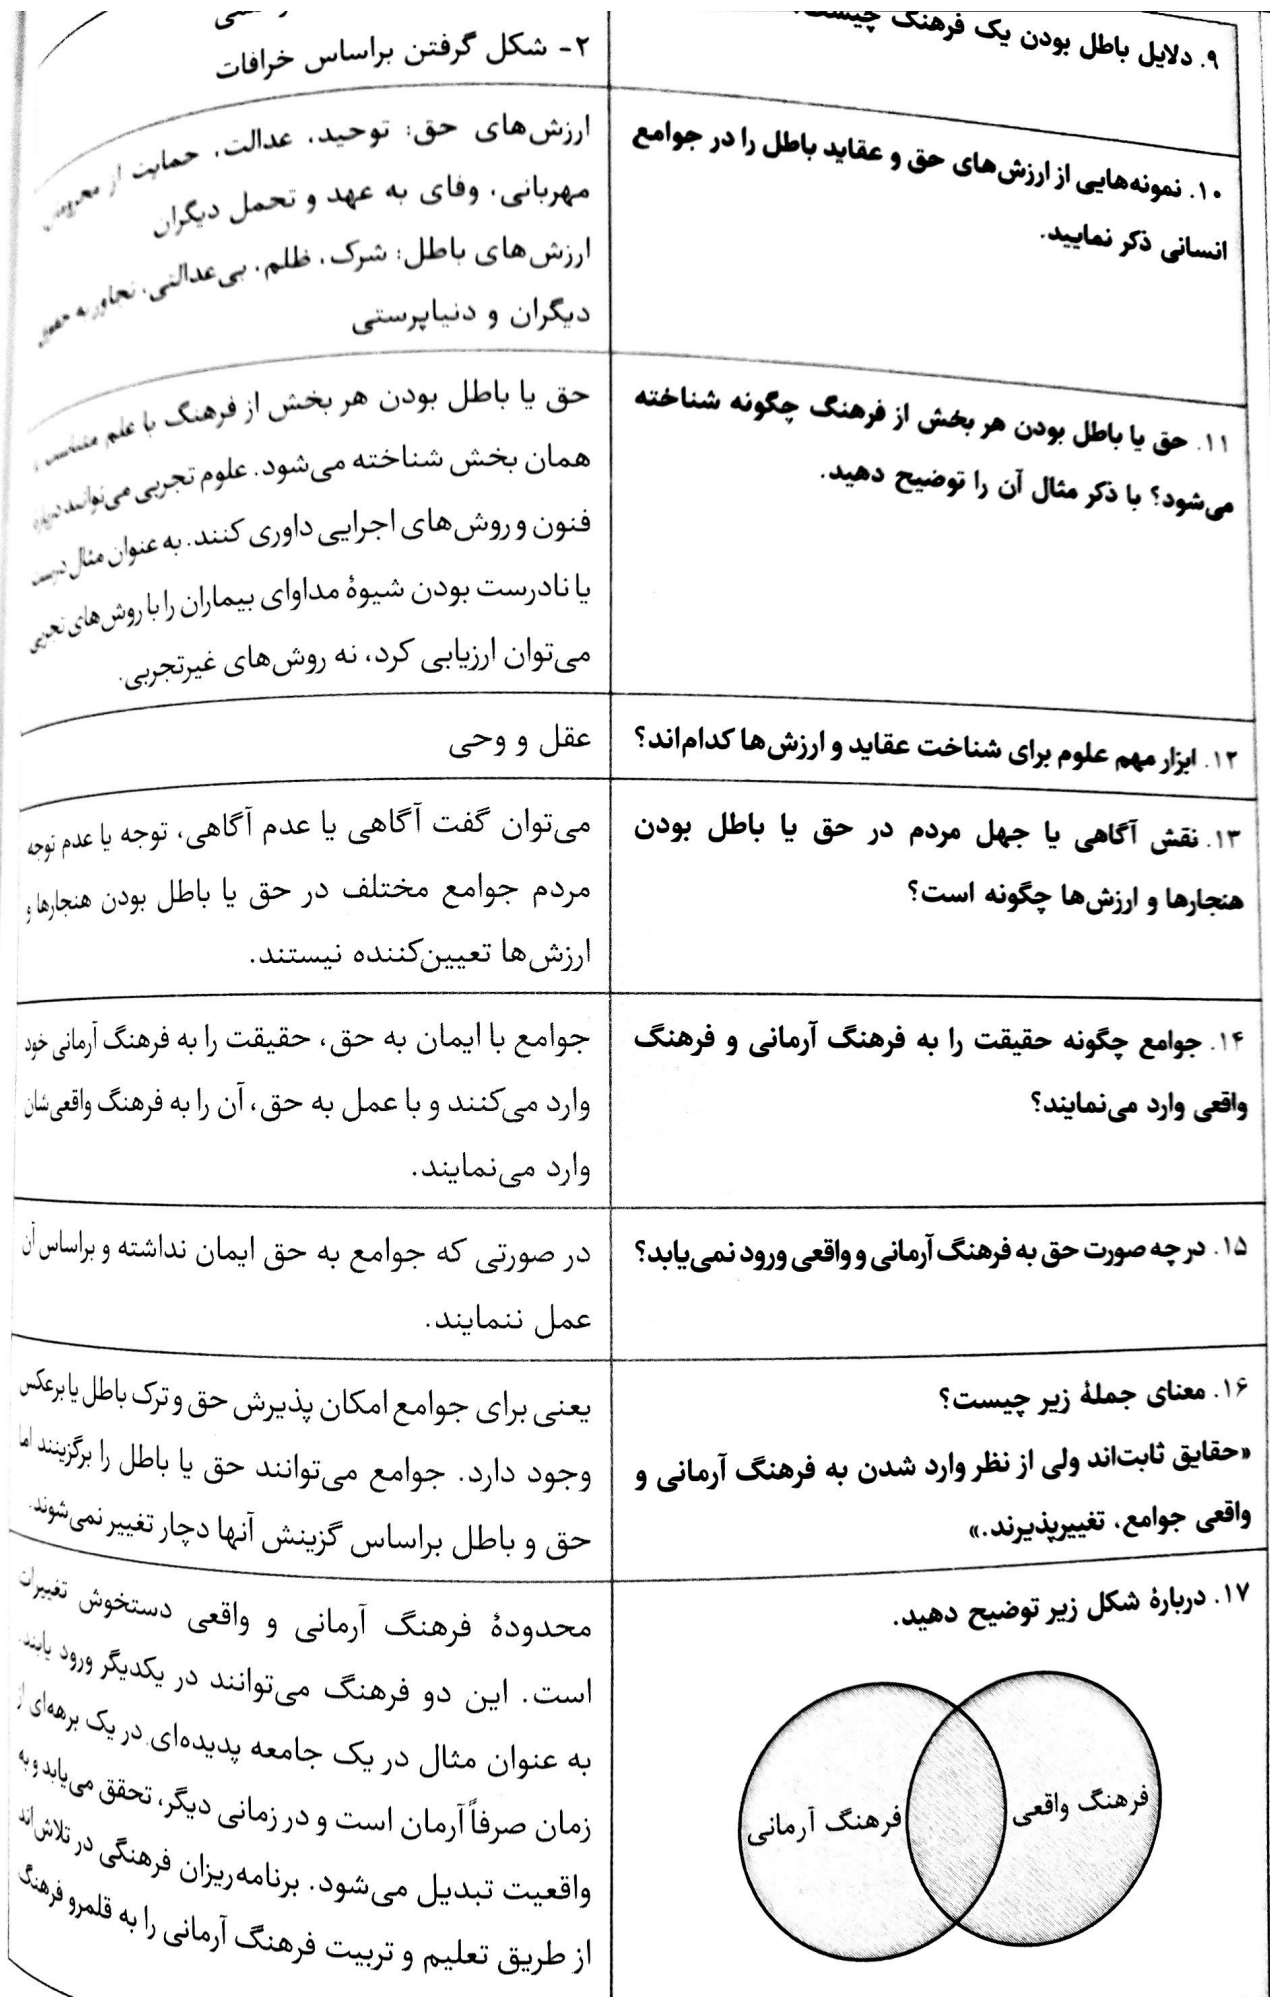 ۹. دلایل باطل بودن یک فرهنگ چیست
۲- شکل گرفتن براساس خرافات
۱۰. نمونه‌هایی از ارزش‌های حق و عقاید باطل را در جوامع
انسانی ذکر نمایید.
ارزش‌های حق: توحید، عدالت، حمایت از محرومان
مهربانی، وفای به عهد و تحمل دیگران
ارزش‌های باطل: شرک، ظلم، بی‌عدالتی، تجاوز به حقوق
دیگران و دنیاپرستی
۱۱. حق یا باطل بودن هر بخش از فرهنگ چگونه شناخته
می‌شود؟ با ذکر مثال آن را توضیح دهید.
حق یا باطل بودن هر بخش از فرهنگ با علم متناسب
همان بخش شناخته می‌شود. علوم تجربی می‌توانند درباره
فنون و روش‌های اجرایی داوری کنند. به عنوان مثال درست
یا نادرست بودن شیوهٔ مداوای بیماران را با روش‌های تجربی
می‌توان ارزیابی کرد، نه روش‌های غیرتجربی.
۱۲. ابزار مهم علوم برای شناخت عقاید و ارزش‌ها کدام‌اند؟
عقل و وحی
۱۳. نقش آگاهی یا جهل مردم در حق یا باطل بودن
هنجارها و ارزش‌ها چگونه است؟
می‌توان گفت آگاهی یا عدم آگاهی، توجه یا عدم توجه
مردم جوامع مختلف در حق یا باطل بودن هنجارها و
ارزش‌ها تعیین‌کننده نیستند.
۱۴. جوامع چگونه حقیقت را به فرهنگ آرمانی و فرهنگ
واقعی وارد می‌نمایند؟
جوامع با ایمان به حق، حقیقت را به فرهنگ آرمانی خود
وارد می‌کنند و با عمل به حق، آن را به فرهنگ واقعی‌شان
وارد می‌نمایند.
۱۵. در چه صورت حق به فرهنگ آرمانی و واقعی ورود نمی‌یابد؟
در صورتی که جوامع به حق ایمان نداشته و براساس آن
عمل ننمایند.
۱۶. معنای جملهٔ زیر چیست؟
«حقایق ثابت‌اند ولی از نظر وارد شدن به فرهنگ آرمانی و
واقعی جوامع، تغییرپذیرند.»
یعنی برای جوامع امکان پذیرش حق و ترک باطل یا برعکس
وجود دارد. جوامع می‌توانند حق یا باطل را برگزینند اما
حق و باطل براساس گزینش آنها دچار تغییر نمی‌شوند.
۱۷. دربارهٔ شکل زیر توضیح دهید.
فرهنگ واقعی
فرهنگ آرمانی
محدودهٔ فرهنگ آرمانی و واقعی دستخوش تغییرات
است. این دو فرهنگ می‌توانند در یکدیگر ورود یابند.
به عنوان مثال در یک جامعه پدیده‌ای در یک برهه‌ای از
زمان صرفاً آرمان است و در زمانی دیگر، تحقق می‌یابد و به
واقعیت تبدیل می‌شود. برنامه‌ریزان فرهنگی در تلاش‌اند
از طریق تعلیم و تربیت فرهنگ آرمانی را به قلمرو فرهنگ